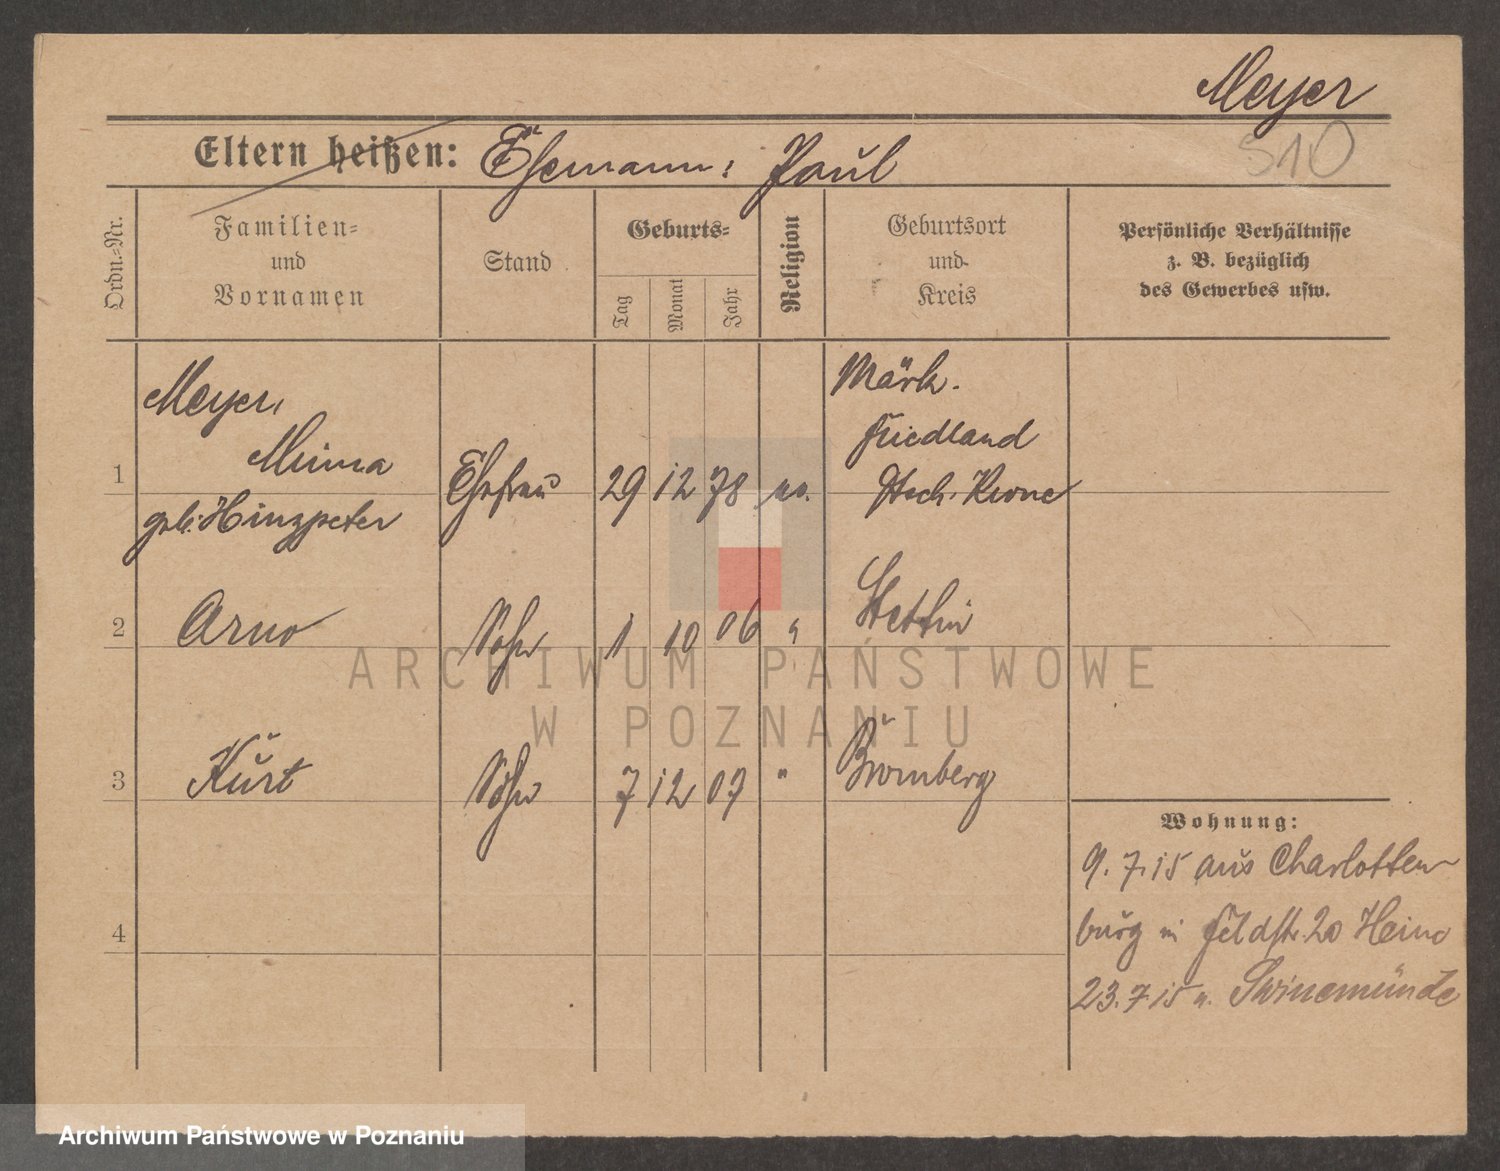 Meyer
510
Eltern heißen: Ehemann: Paul
Ordn.=Nr.
Familien=
und
Vornamen
Stand
Geburts=
Tag
Monat
Jahr
Religion
Geburtsort
und
Kreis
Persönliche Verhältnisse
z. B. bezüglich
des Gewerbes usw.
Meyer,
Minna
1
geb. Hinzpeter
Ehefrau
29 12 78 ev.
Märk.
Friedland
Dtsch. Krone
2 Arno Sohn 1 10 06 " Stettin
3 Kurt Sohn 7 12 07 " Bromberg
4
Wohnung:
9. 7. 15 aus Charlotten
burg in Feldstr. 20
23. 7. 15 n. Swinemünde
ARCHIWUM PAŃSTWOWE
W POZNANIU
Archiwum Państwowe w Poznaniu